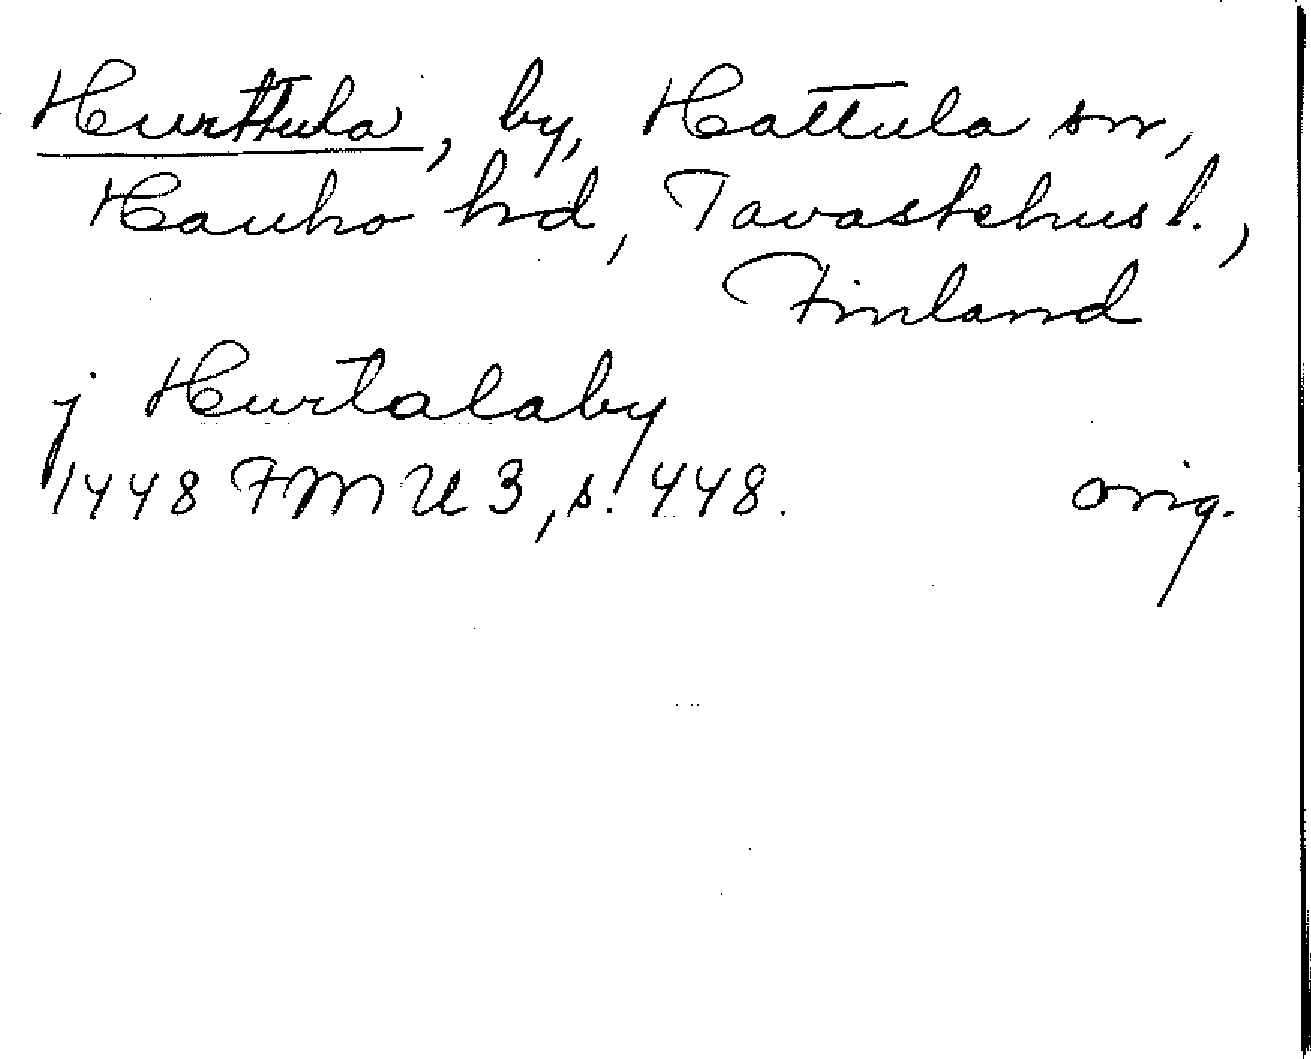 Hurttula, by, Hattula sn,
Hauho hd, Tavastehus l.,
Finland
j Hurtalaby
1448 FMU 3, s. 448. orig.